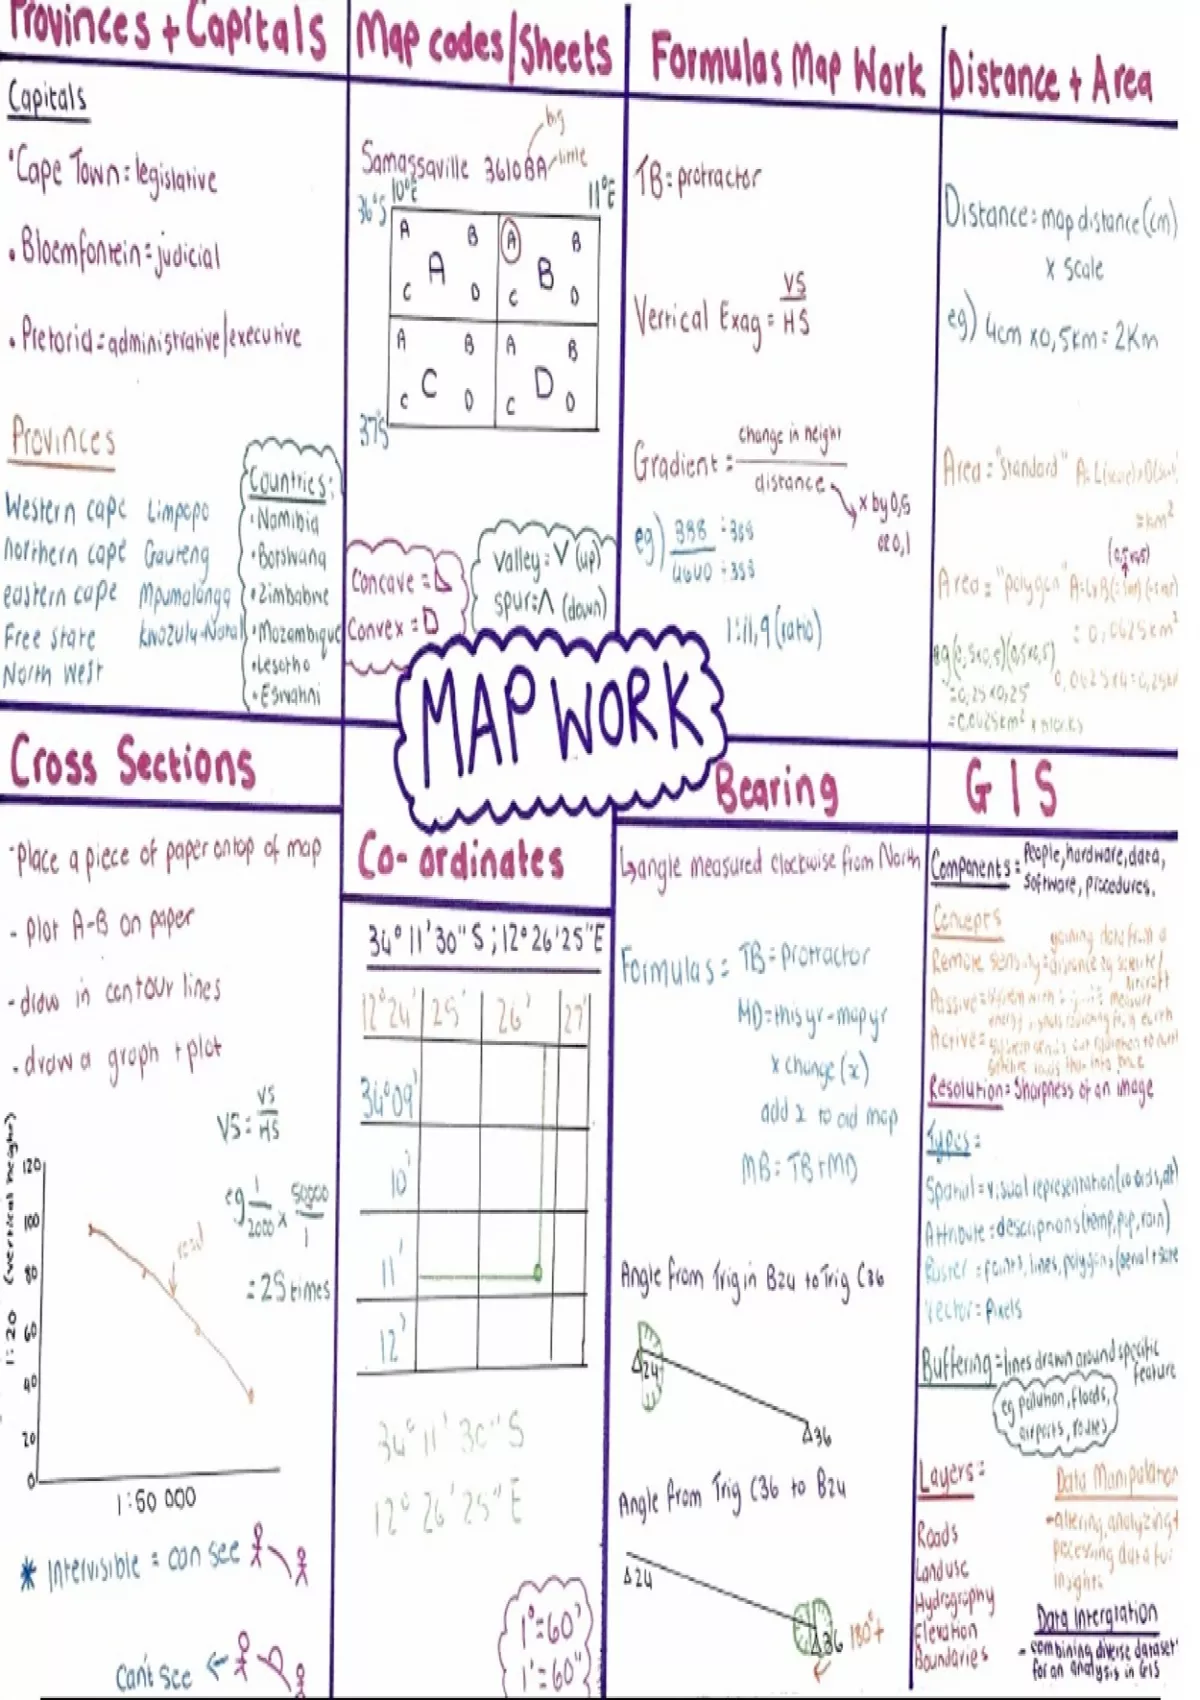 Provinces + Capitals
Capitals
• Cape Town = legislative
• Bloemfontein = judicial
• Pretoria = administrative/executive
Provinces
Western cape Limpopo
Northern cape Gauteng
eastern cape Mpumalanga
Free State kwazulu-Natal
North West
Countries:
• Namibia
• Botswana
• Zimbabwe
• Mozambique
• Lesotho
• Eswatini
Map codes/Sheets
big
Samassaville 3610BA little
10°E 11°E
36°S
A B A B
A B
C D C D
A B A B
C D
C D C D
37°S
Concave =
Convex = D
Valley: V (up)
spur: Λ (down)
Formulas Map Work
TB = protractor
Vertical Exag = VS
HS
Gradient = change in height
distance
x by 0,5
or 0,1
eg) 388 ÷ 388
4600 ÷ 388
1:11,9 (ratio)
Distance + Area
Distance = map distance (cm)
x scale
eg) 4cm x 0,5km = 2km
Area = "Standard"
= km²
Area = "polygon"
= 0,0625km²
eg (0,5x0,5)(0,5x0,5)
= 0,25 x 0,25
= 0.0625km² x blocks
MAP WORK
Cross Sections
- Place a piece of paper on top of map
- plot A-B on paper
- draw in contour lines
- draw a graph + plot
VS = VS
HS
eg 1 x 50000
2000 1
= 25 times
road
1:20 (vertical height)
120
100
80
60
40
20
0
1:50 000
* Intervisible = can see
Can't see
Co-ordinates
34° 11' 30" S ; 12° 26' 25" E
12°24' 25' 26' 27'
34°09'
10'
11'
12'
34° 11' 30" S
12° 26' 25" E
1° = 60'
1' = 60"
Bearing
↳ angle measured clockwise from North
Formulas = TB = protractor
MD = this yr - map yr
x change (x)
add x to old map
MB = TB + MD
Angle from Trig in B24 to Trig C36
Δ24
Δ36
Angle from Trig C36 to B24
Δ24
Δ36 180° +
GIS
Components = People, hardware, data,
software, procedures.
Concepts
Remote
Passive =
Active =
Resolution = Sharpness of an image
Types =
Spatial = visual representation
Attribute = descriptions (temp, pop, rain)
Raster = points, lines, polygons
Vector = Pixels
Buffering = lines drawn around specific
feature
eg pollution, floods,
airports, routes
Layers =
Roads
Landuse
Hydrography
Elevation
Boundaries
Data Manipulation
- altering, analyzing +
processing data for
insights
Data Intergration
- combining diverse dataset
for an analysis in GIS